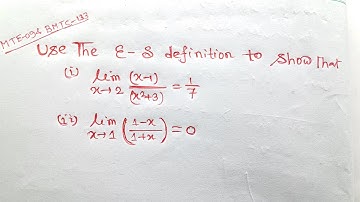 MTE-09& BMTC-133
Use The ε-S definition to show that
(i) lim x→2 (x-1)/(x²+3) = 1/7
(ii) lim x→1 (1-x/1+x) = 0